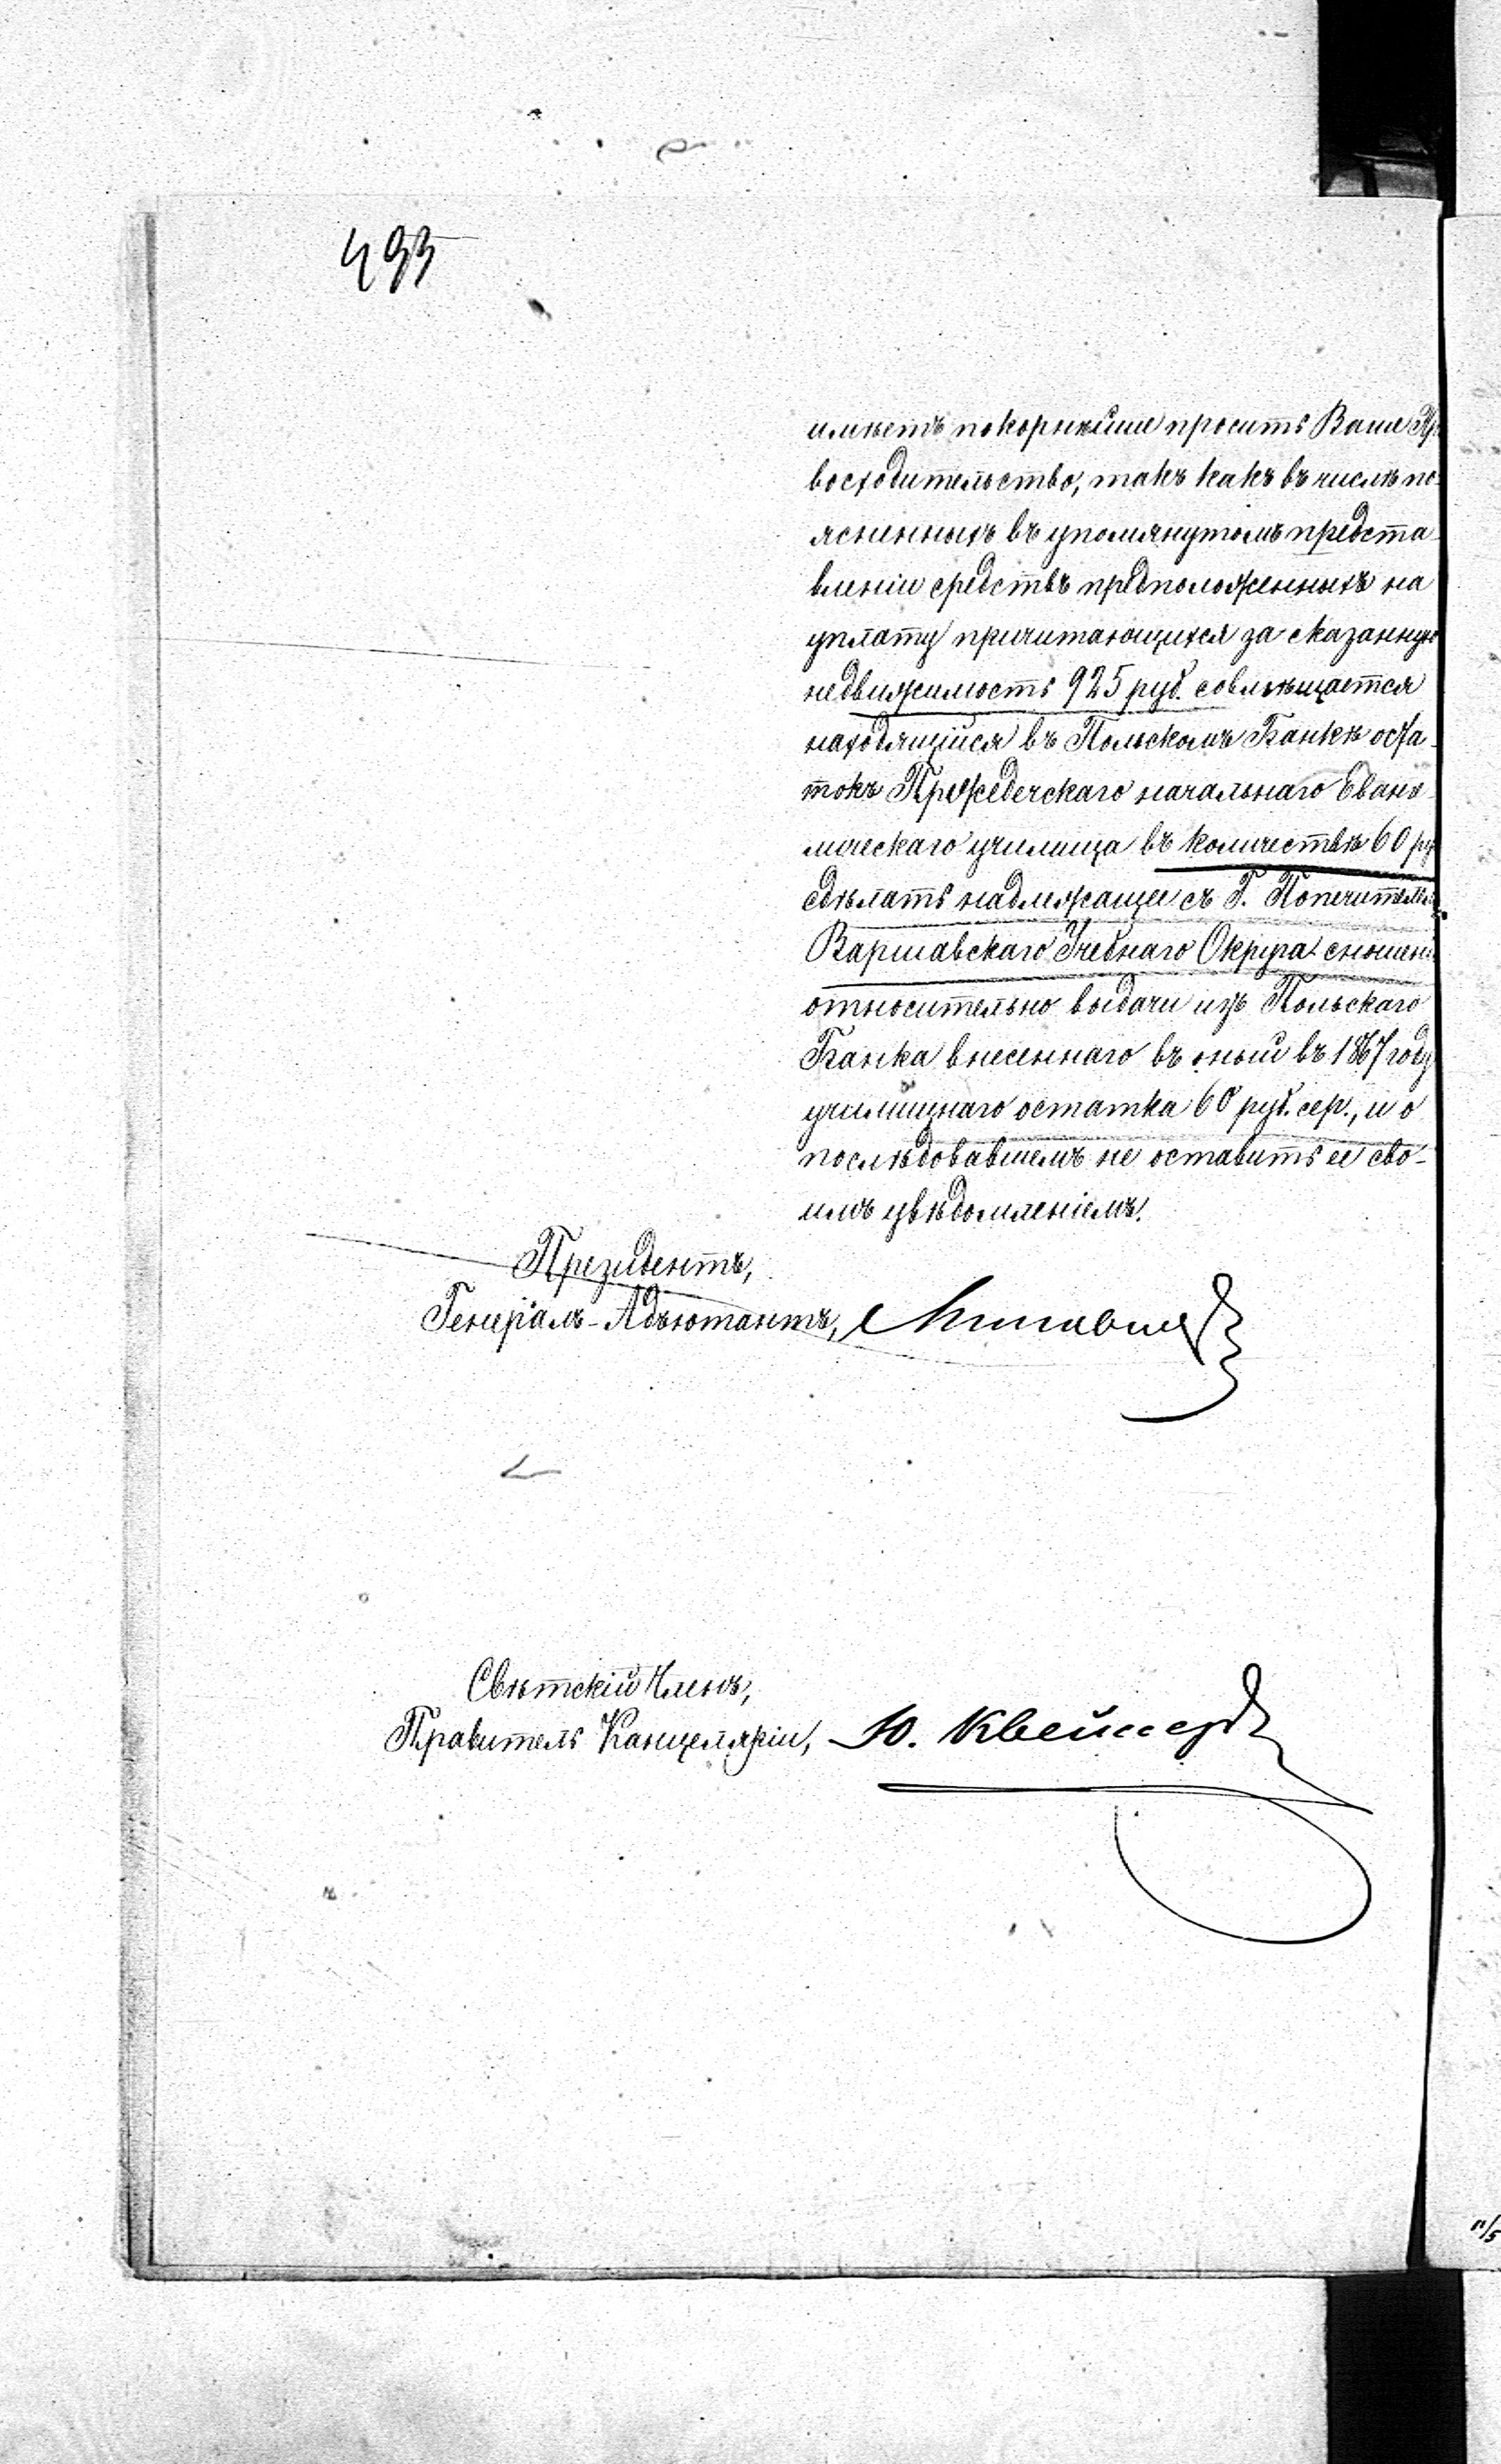 493
имѣетъ покорнѣйше просить Ваше Пр
восходительство, такъ какъ въ числѣ по-
ясненныхъ въ упомянутомъ предста-
вленіи средствъ предположенныхъ на
уплату причитающихся за сказанную
недвижимость 925 руб. совмѣщается
находящійся въ Польскомъ Банкѣ оста-
токъ Пржедечскаго начальнаго Еванг
лическаго училища въ количествѣ 60 ру
сдѣлать надлежащее съ Г. Попечителем
Варшавскаго Учебнаго Округа сношені
относительно выдачи изъ Польскаго
Банка внесеннаго въ оный въ 1867 году
училищнаго остатка 60 руб. сер., и о
послѣдовавшемъ не оставить ее сво-
имъ увѣдомленіемъ.
Президентъ,
Генералъ-Адъютантъ,
Свѣтскій Членъ,
Правитель Канцеляріи, Ю.